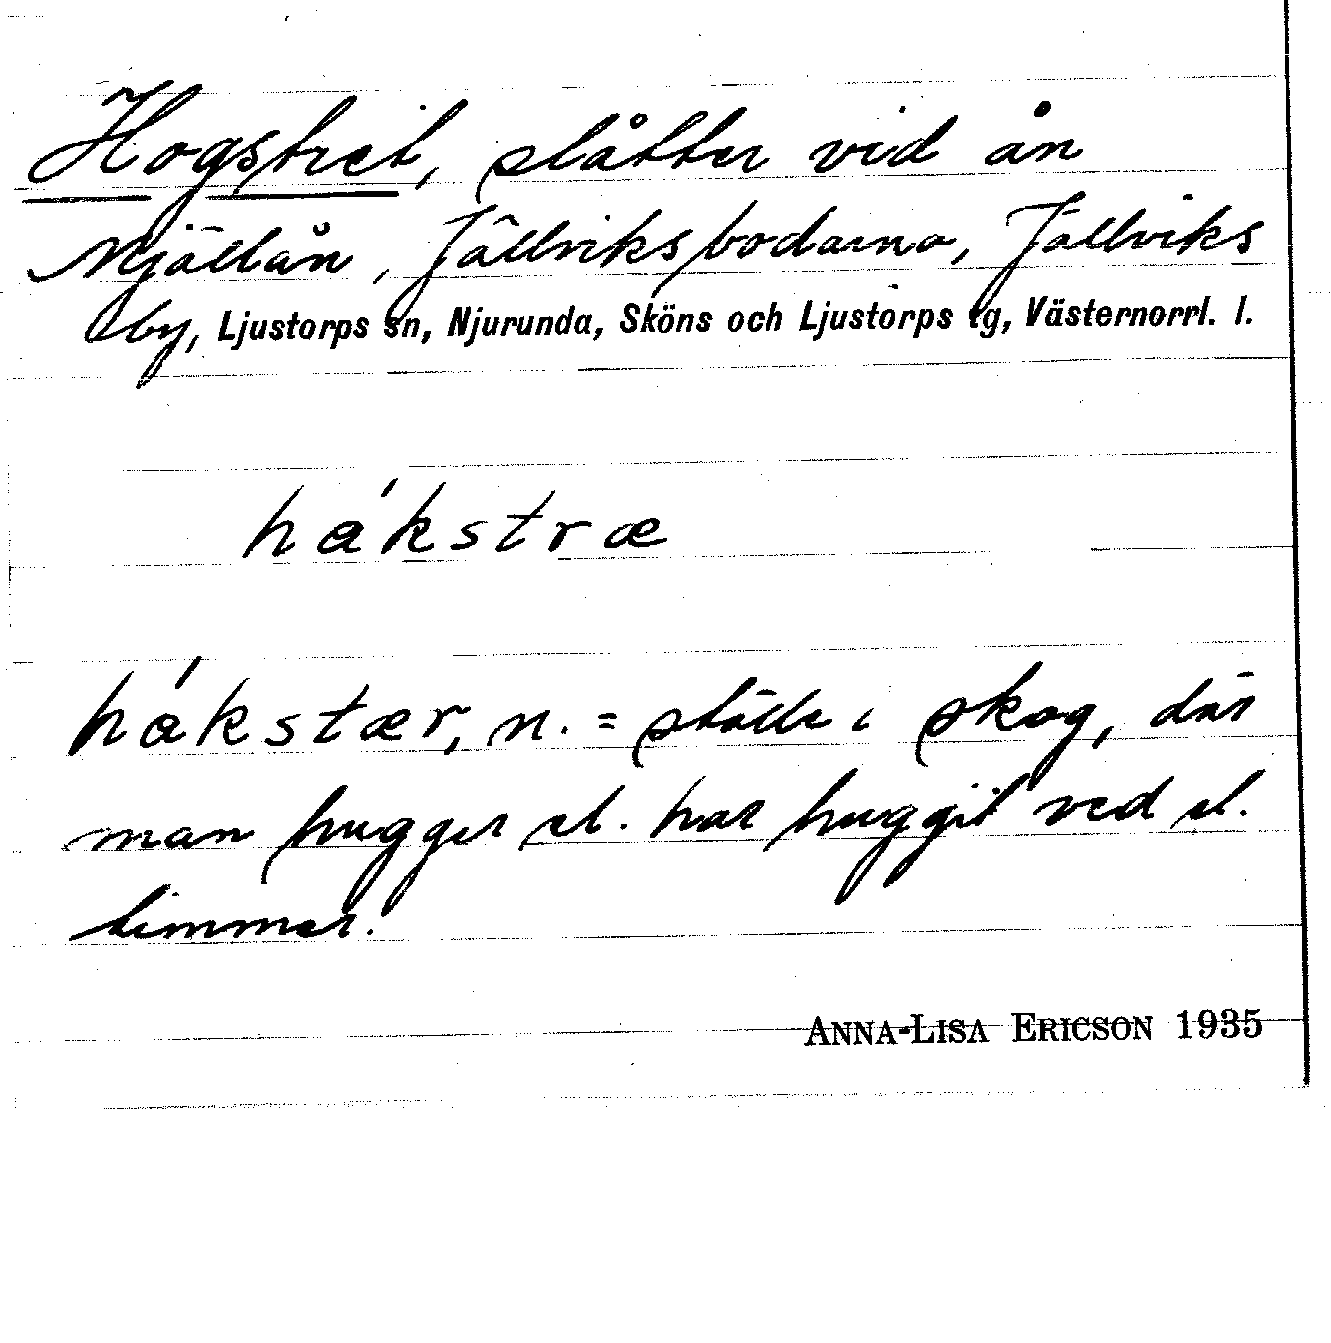 Hogstret, slåtter vid ån
Mjällån, Jällviksbodarna, Jällviks
by, Ljustorps sn, Njurunda, Sköns och Ljustorps tg, Västernorrl. l.
hákstræ
hákstær, n. = ställe i skog, där
man hugger el. har huggit ved el.
timmer.
ANNA-LISA ERICSON 1935